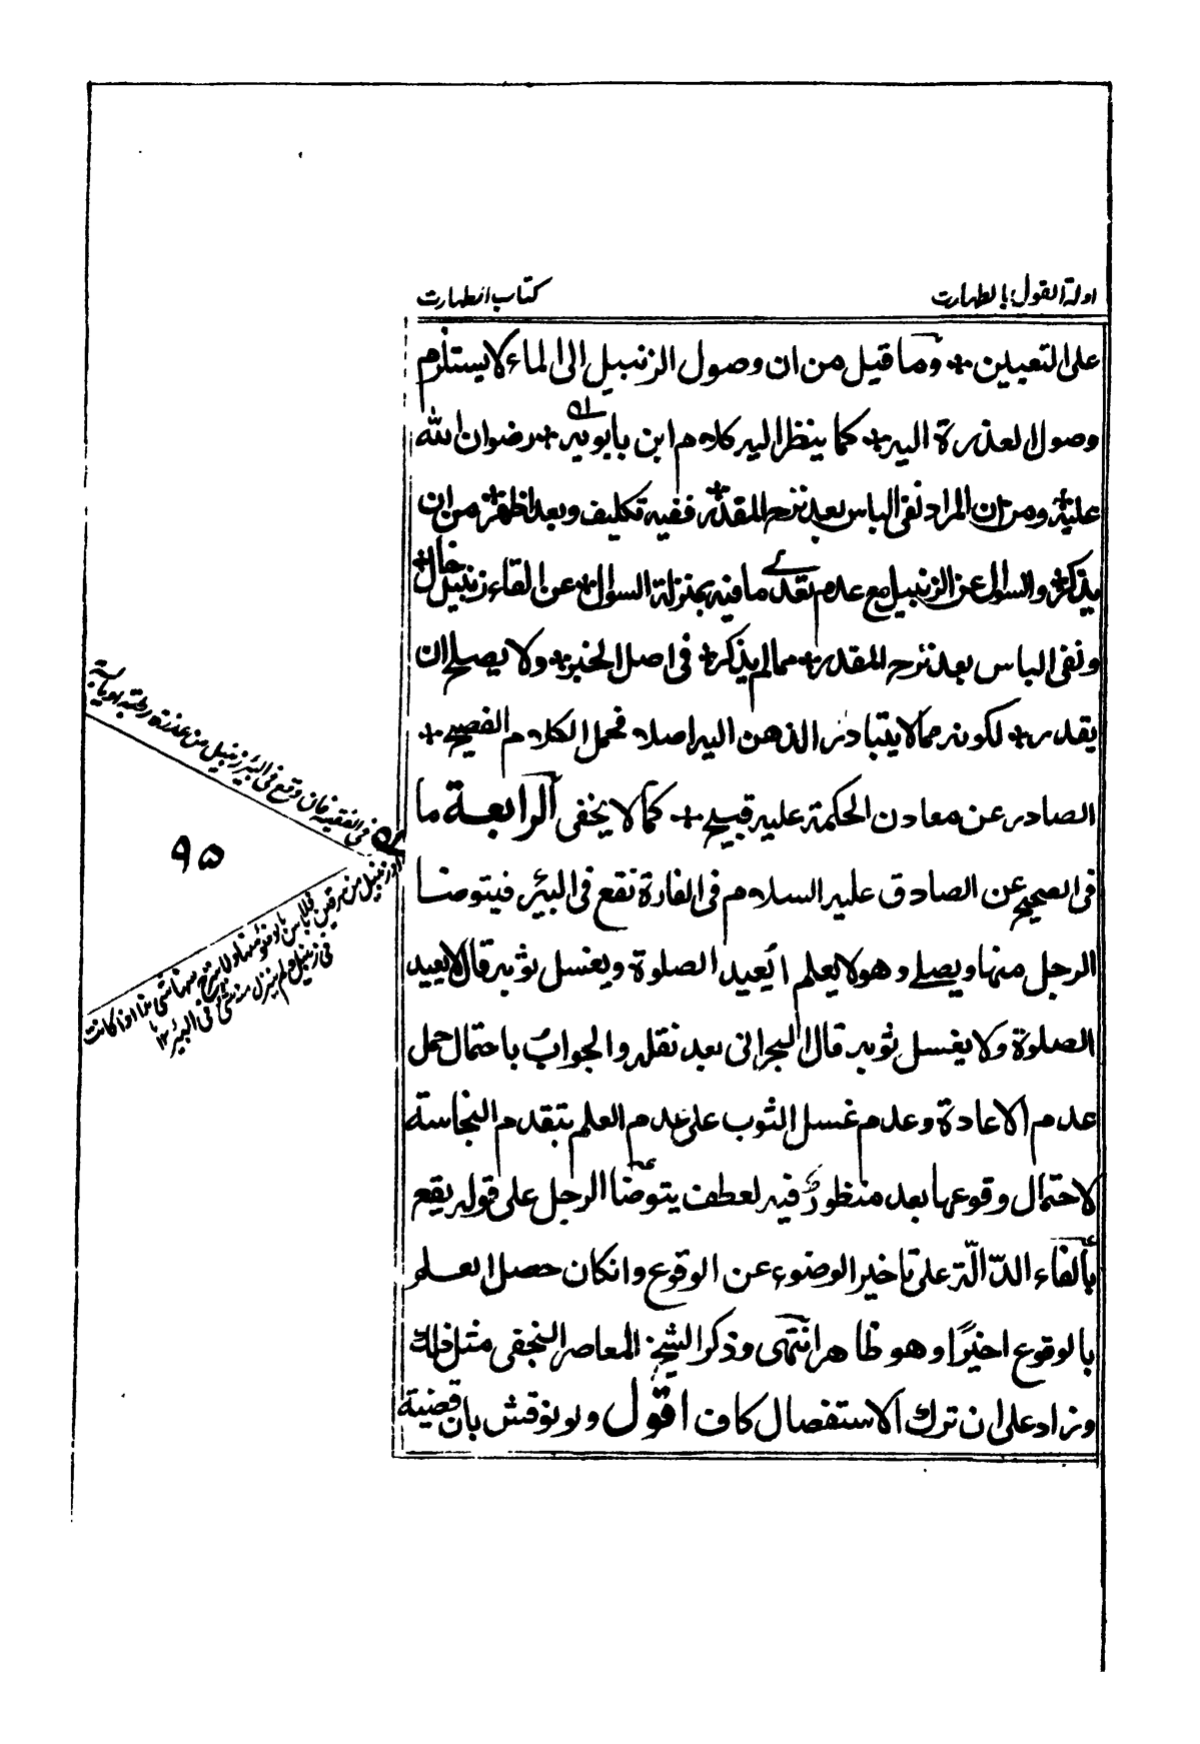 ادلة القول بالطهارت
كتاب الطهارت
على التعيين + وما قيل من ان وصول الزنبيل الى الماء لا يستلزم
وصول العذرة اليه + كما ينظر اليه كلام ابن بابويه + رضوان الله
عليه + ومن ان المراد نفى الباس بعد نزح المقدر + ففيه تكليف وبعد اظهر + من ان
يذكر + والسوال عن الزنبيل مع عدم تعدى ما فيه بمنزلة السوال + عن القاء زنبيل خال +
ونفى الباس بعد نزح المقدر + مما لم يذكر + فى اصل الخبر + ولا يصلح ان
يقدر + لكونه مما لا يتبادر الذهن اليه اصلا + فحمل الكلام الفصيح +
الصادر عن معادن الحكمة عليه قبيح + كما لا يخفى الرابعة ما
فى الصحيح عن الصادق عليه السلام فى الفارة تقع فى البئر فيتوضا
الرجل منها ويصلى وهو لا يعلم ايعيد الصلوة ويغسل ثوبه قال لا يعيد
الصلوة ولا يغسل ثوبه قال البحرانى بعد نقله والجواب باحتمال حمل
عدم الاعادة وعدم غسل الثوب على عدم العلم بتقدم النجاسة
لاحتمال وقوعها بعد منظور فيه لعطف يتوضأ الرجل على قوله يقع
بالفاء الدّالّة على تاخير الوضوء عن الوقوع وانكان حصل العلم
بالوقوع اخيرًا وهو ظاهر انتهى وذكر الشيخ المعاصر النجفى مثل ذلك
وزاد على ان ترك الاستفصال كاف اقول ولو نوقش بان قضية
فى الفقيه فان وقع فى البئر زنبيل من عذرة رطبة او يابسة
او زنبيل من سرقين فلا باس بالوضوء منها ولا ينزح منها شى هذا اذا كانت
فى زنبيل ولم ينزل منه شى فى البئر ١٢
٩٥